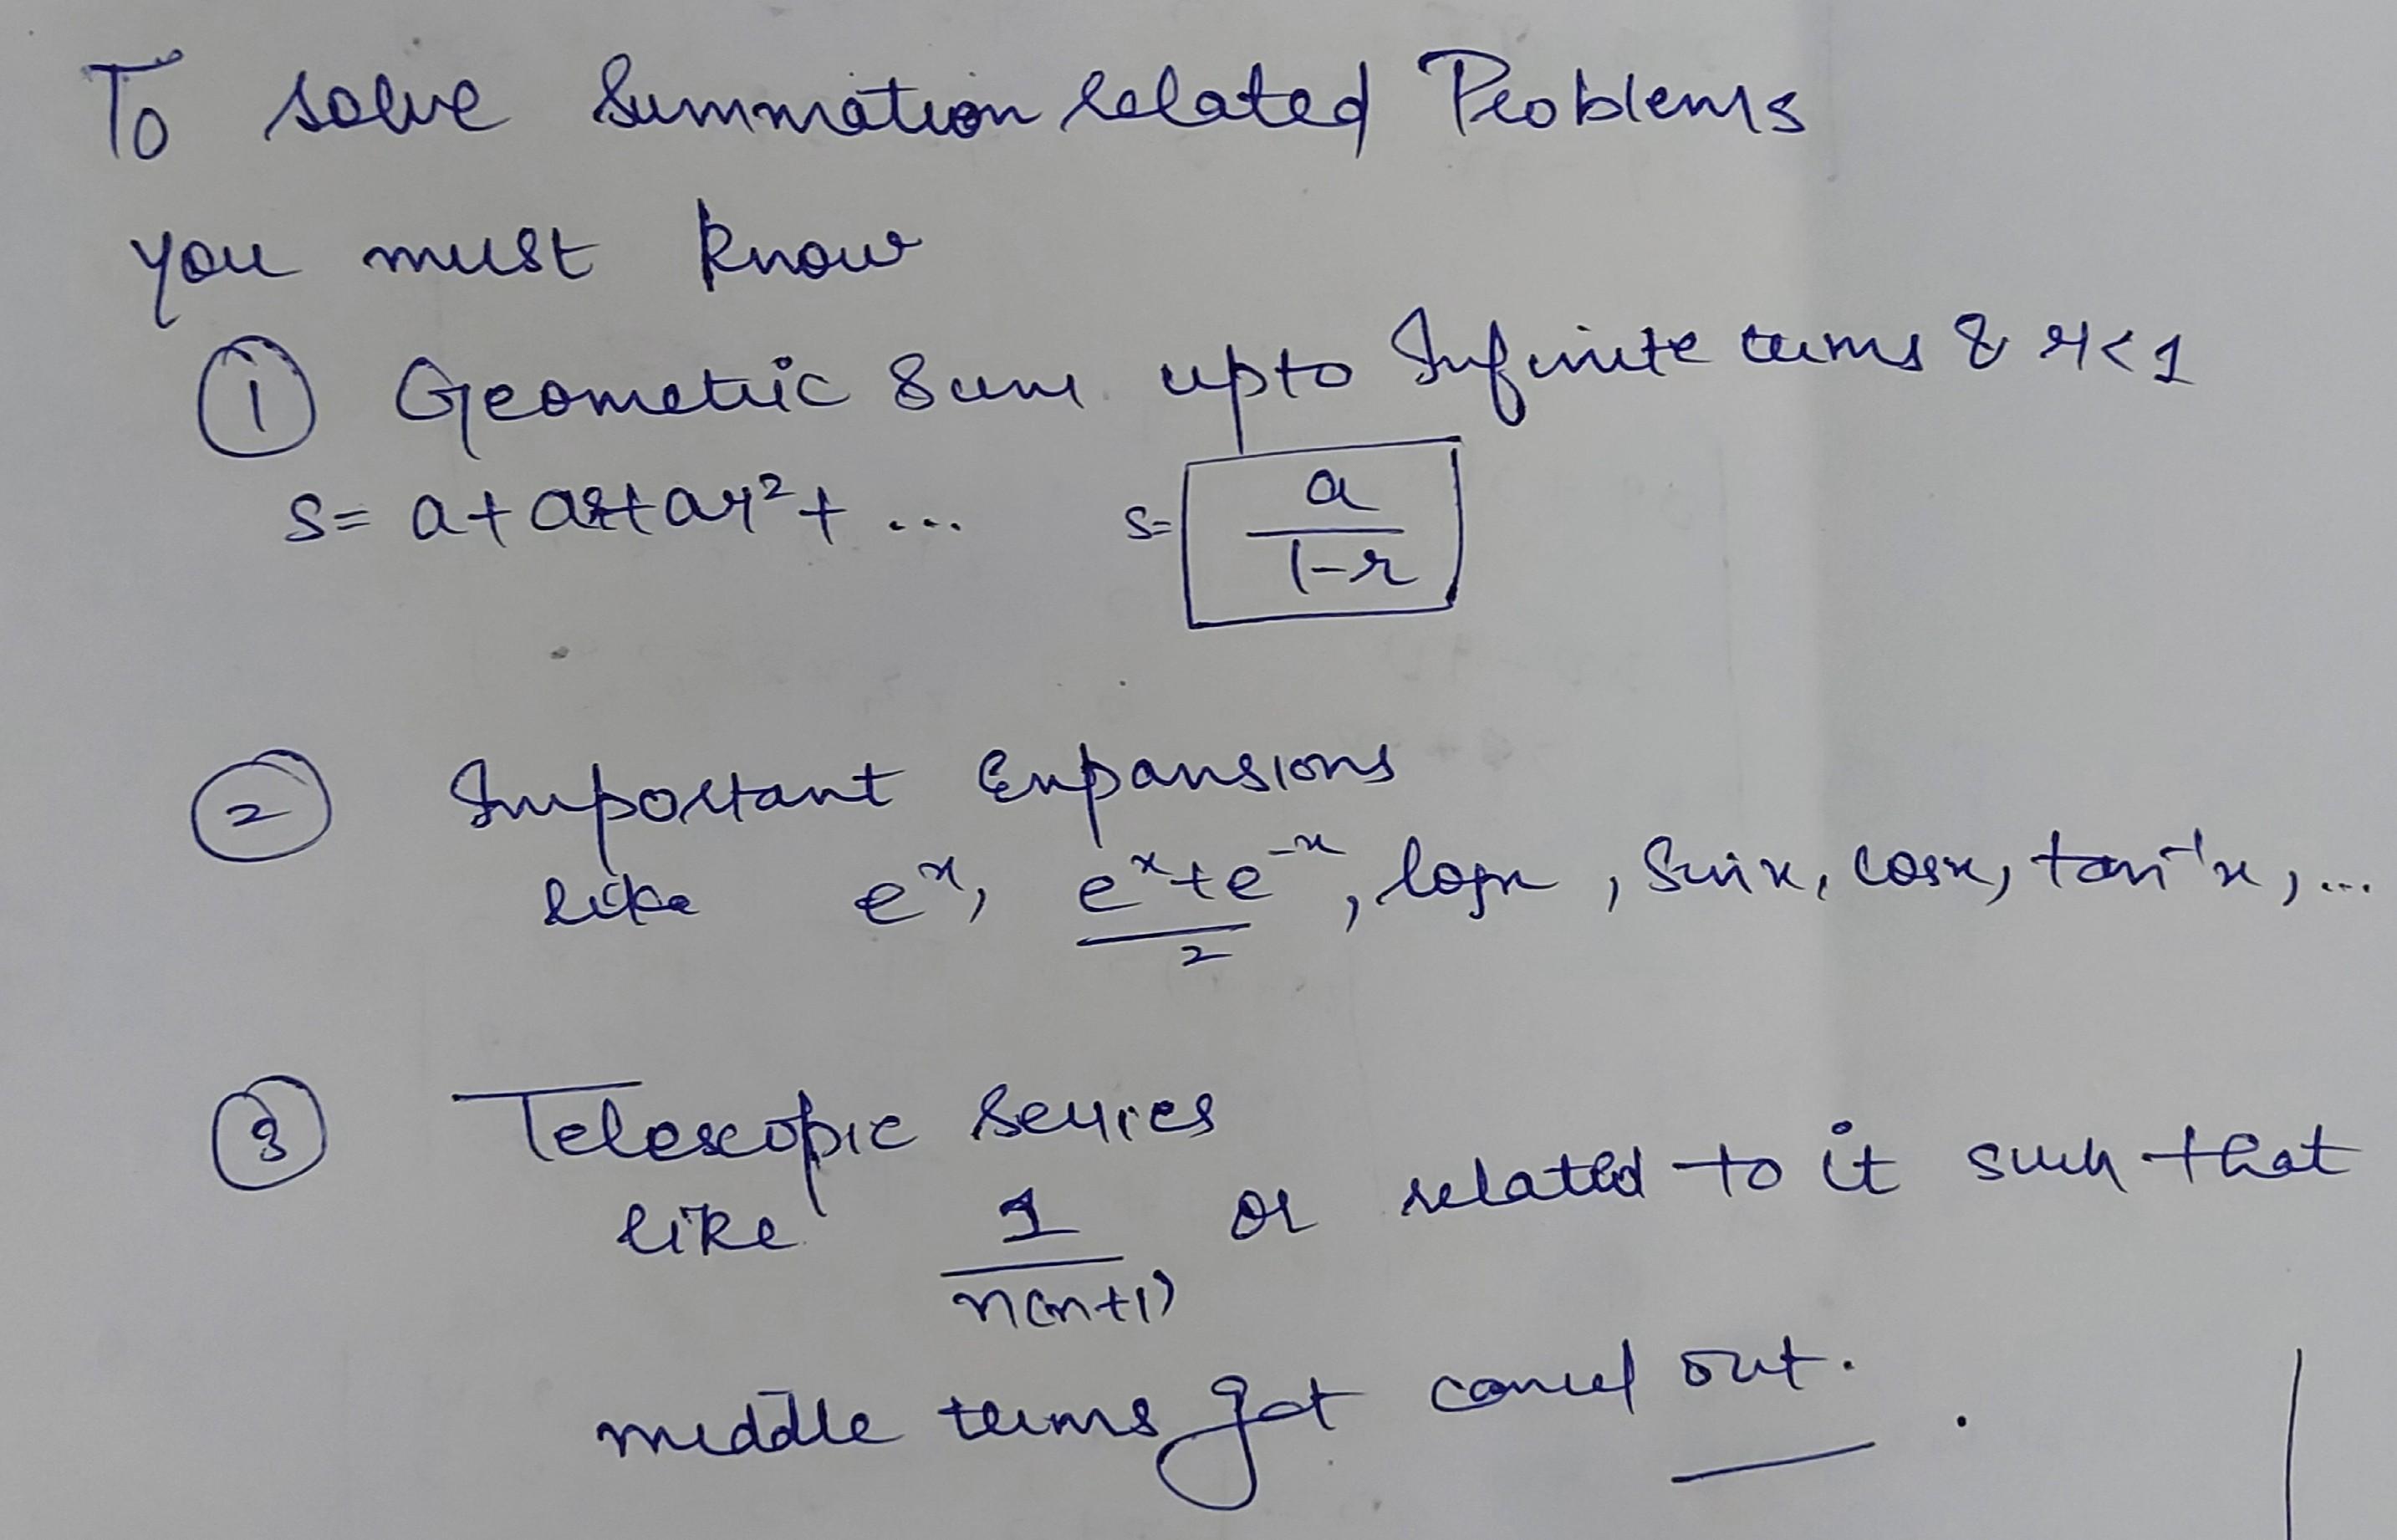 To solve Summation related Problems
you must know
① Geometric Sum upto Infinite terms & r<1
S= a+ar+ar²+ ... S= a/(1-r)
② Important Expansions
like eˣ, (eˣ+e⁻ˣ)/2, logx, Sinx, cosx, tan⁻¹x, ...
③ Telescopic Series
like 1/(n(n+1)) or related to it such that
middle terms got cancel out.